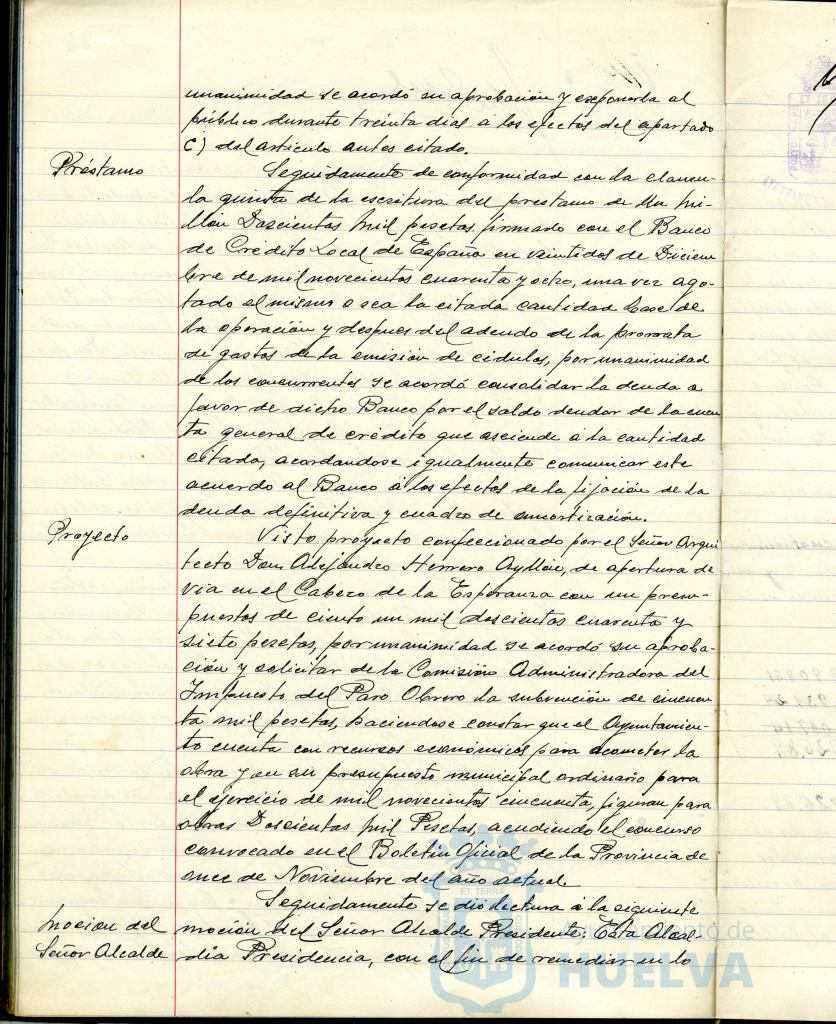 unanimidad se acordó su aprobación y exponerla al
público durante treinta dias á los efectos del apartado
C) del articulo antes citado.
Préstamo
Seguidamente de conformidad con la clausu-
la quinta de la escritura del prestamo de Un mi-
llón Doscientas mil pesetas, firmado con el Banco
de Crédito Local de España en veintidos de Diciem
bre de mil novecientos cuarenta y ocho, una vez ago-
tado el mismo o sea la citada cantidad base de
la operación y despues del adeudo de la prorrata
de gastos de la emisión de cédulas, por unanimidad
de los concurrentes se acordó consolidar la deuda a
favor de dicho Banco por el saldo deudor de la cuen
ta general de crédito que asciende á la cantidad
citada, acordandose igualmente comunicar este
acuerdo al Banco á los efectos de la fijación de la
deuda definitiva y cuadro de amortización.
Proyecto
Visto proyecto confeccionado por el Señor Arqui
tecto Don Alejandro Herrero Ayllón, de apertura de
via en el Cabezo de la Esperanza con un presu-
puestos de ciento un mil doscientas cuarenta y
siete pesetas, por unanimidad se acordó su aproba-
ción y solicitar de la Comisión Administradora del
Impuesto del Paro Obrero la subvención de cincuen
ta mil pesetas, haciendose constar que el Ayuntamien-
to cuenta con recursos económicos para acometer la
obra y en su presupuesto municipal ordinario para
el ejercicio de mil novecientos cincuenta, figuran para
obras Doscientas mil Pesetas, acudiendo el concurso
convocado en el Boletin Oficial de la Provincia de
once de Noviembre del año actual.
Mocion del
Señor Alcalde
Seguidamente se dio lectura á la siguiente
moción del Señor Alcalde Presidente: Esta Alcal
dia Presidencia, con el fin de remediar en lo
Ayuntamiento de
HUELVA